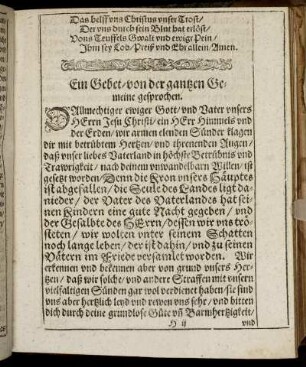 Das helff vns Christus vnser Trost/
Der vns durch sein Blut hat erlöst/
Vons Teuffels Gwalt vnd ewige Pein/
Ihm sey Lob/ Preiß vnd Ehr allein/ Amen.
Ein Gebet/ von der gantzen Ge-
meine gesprochen.
O Allmechtiger ewiger Gott/ vnd Vater vnsers
HErrn Jesu Christi/ ein HErr Himmels vnd
der Erden/ wir armen elenden Sünder klagen
dir mit betrübtem Hertzen/ vnd threnenden Augen/
daß vnser liebes Vaterland in höchste Betrübnis vnd
Trawrigkeit/ nach deinem vnwandelbarn Willen/ ist
gesetzt worden/ Denn die Cron vnsers Häuptes
ist abgefallen/ die Seule des Landes ligt da-
nieder/ der Vater des Vaterlandes hat sei-
nen Kindern eine gute Nacht gegeben/ vnd
der Gesalbte des HErrn/ dessen wir vns trö-
steten/ wir wolten vnter seinem Schatten
noch lange leben/ der ist dahin/ vnd zu seinen
Vätern im Friede versamlet worden. Wir
erkennen vnd bekennen aber von grund vnsers Her-
tzen/ daß wir solche/ vnd andere Straffen mit vnsern
vielfaltigen Sünden gar wol verdienet haben/ sie sind
vns aber hertzlich leyd vnd rewen vns sehr/ vnd bitten
dich durch deine grundlose Güte vñ Barmhertzigkeit/
H ij vnd